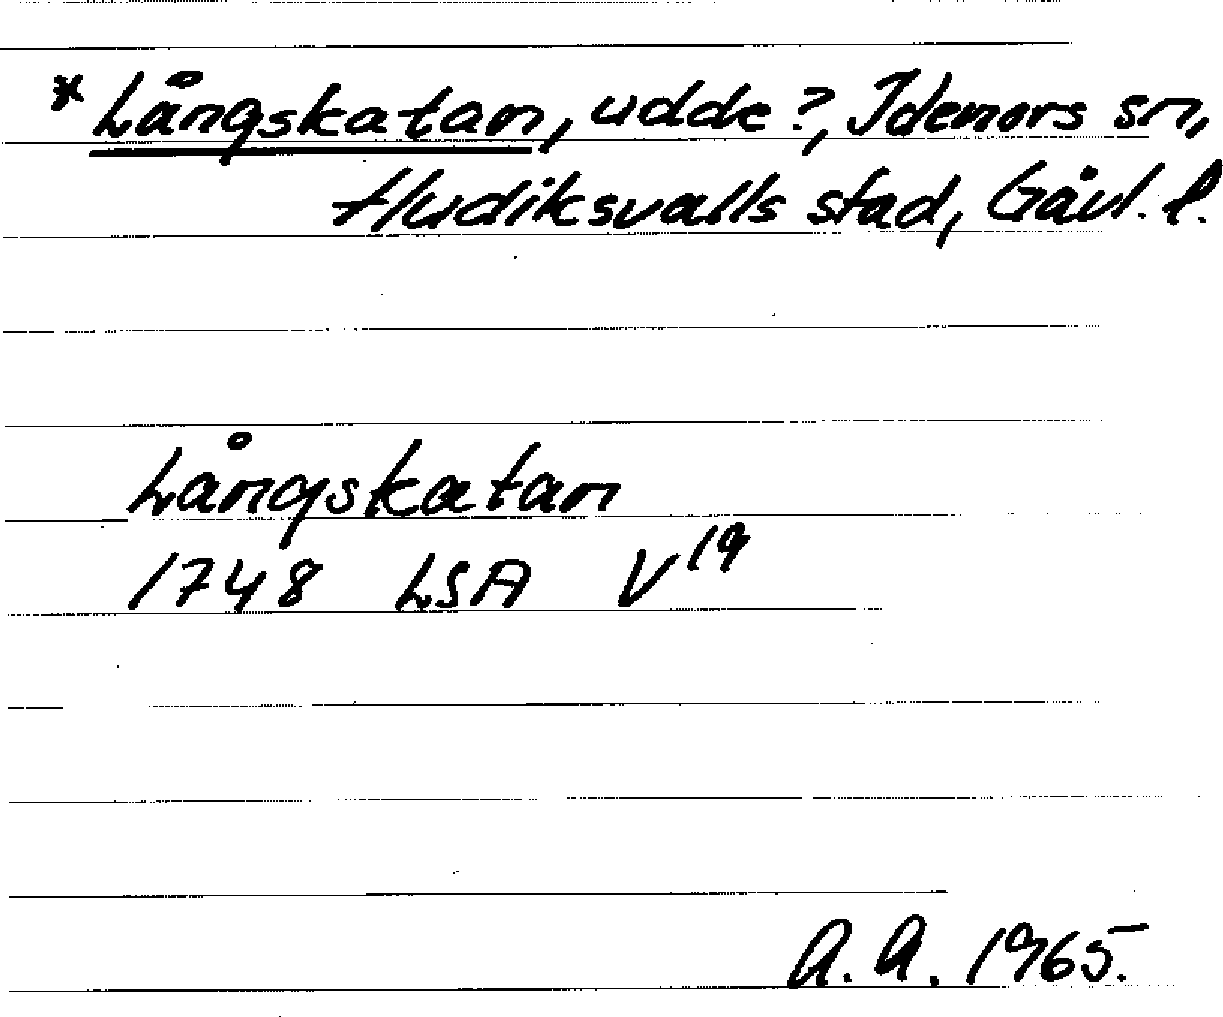 * Långskatan, udde?, Idenors sn,
Hudiksvalls stad, Gävl. l.
Långskatan
1748 LSA V¹⁹
A. A. 1965.